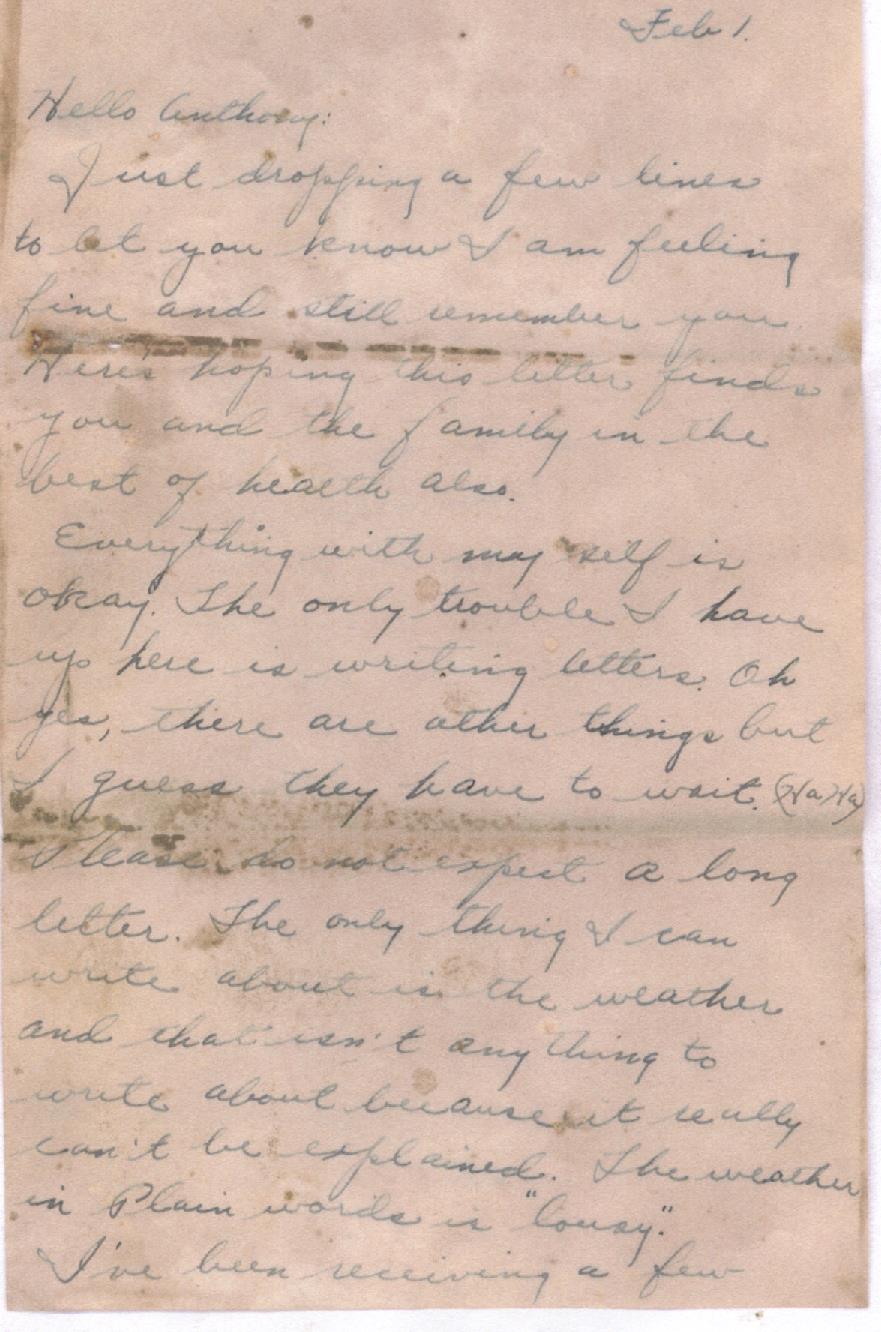 Feb 1.
Hello Anthony:
Just dropping a few lines
to let you know I am feeling
fine and still remember you.
Here's hoping this letter finds
you and the family in the
best of health also.
Everything with my self is
okay. The only trouble I have
up here is writing letters. Oh
yes, there are other things but
I guess they have to wait. (Ha Ha)
Please do not expect a long
letter. The only thing I can
write about is the weather
and that isn't any thing to
write about because it really
can't be explained. The weather
in Plain words is "lousy".
I've been receiving a few